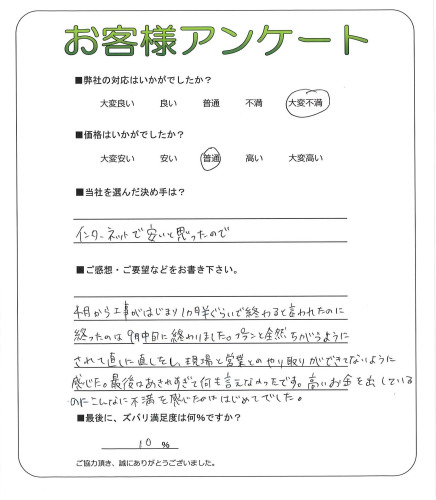 お客様アンケート
■弊社の対応はいかがでしたか?
大変良い 良い 普通 不満 大変不満
■価格はいかがでしたか?
大変安い 安い 普通 高い 大変高い
■当社を選んだ決め手は?
インターネットで安いと思ったので
■ご感想・ご要望などをお書き下さい。
月から工事がはじまり1ヵ月半ぐらいで終わると言われたのに
終ったのは9月中旬に終わりました。プランと全然ちがうように
されて直しに直しをし、現場と営業とのやり取りができてないように
感じた。最後はあきれすぎて何も言えなかったです。高いお金を出している
のにこんなに不満を感じたのははじめてでした。
■最後に、ズバリ満足度は何%ですか?
10 %
ご協力頂き、誠にありがとうございました。